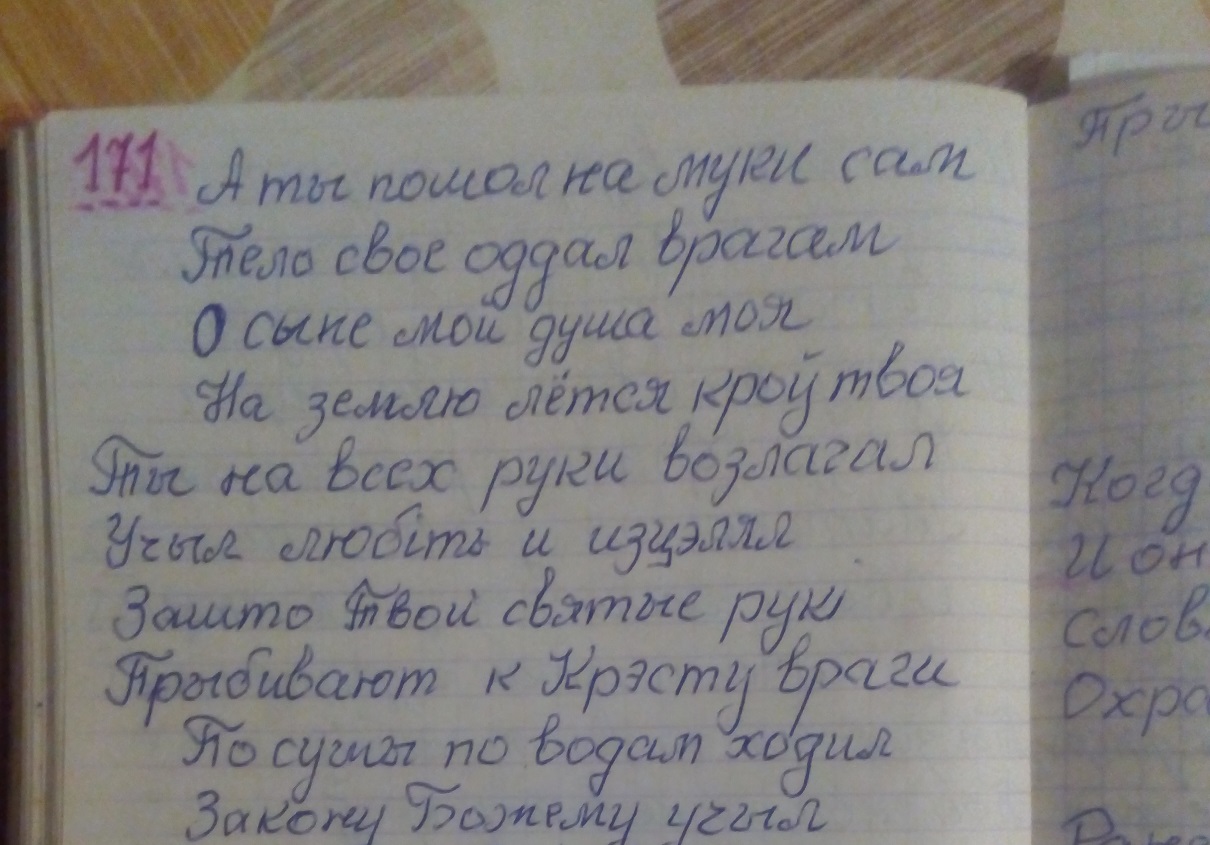 171 А ты пошол на муки сам
Тело свое оддал врагам
О сыне мой душа моя
На землю лётся кроў твоя
Ты на всех руки возлагал
Учыл любіть и изцэлял
Зашто Твои святые руки
Прыбивают к Крэсту враги
По сушы по водам ходил
Закону Божему учыл
Пры
Когд
И он
Слов
Охра